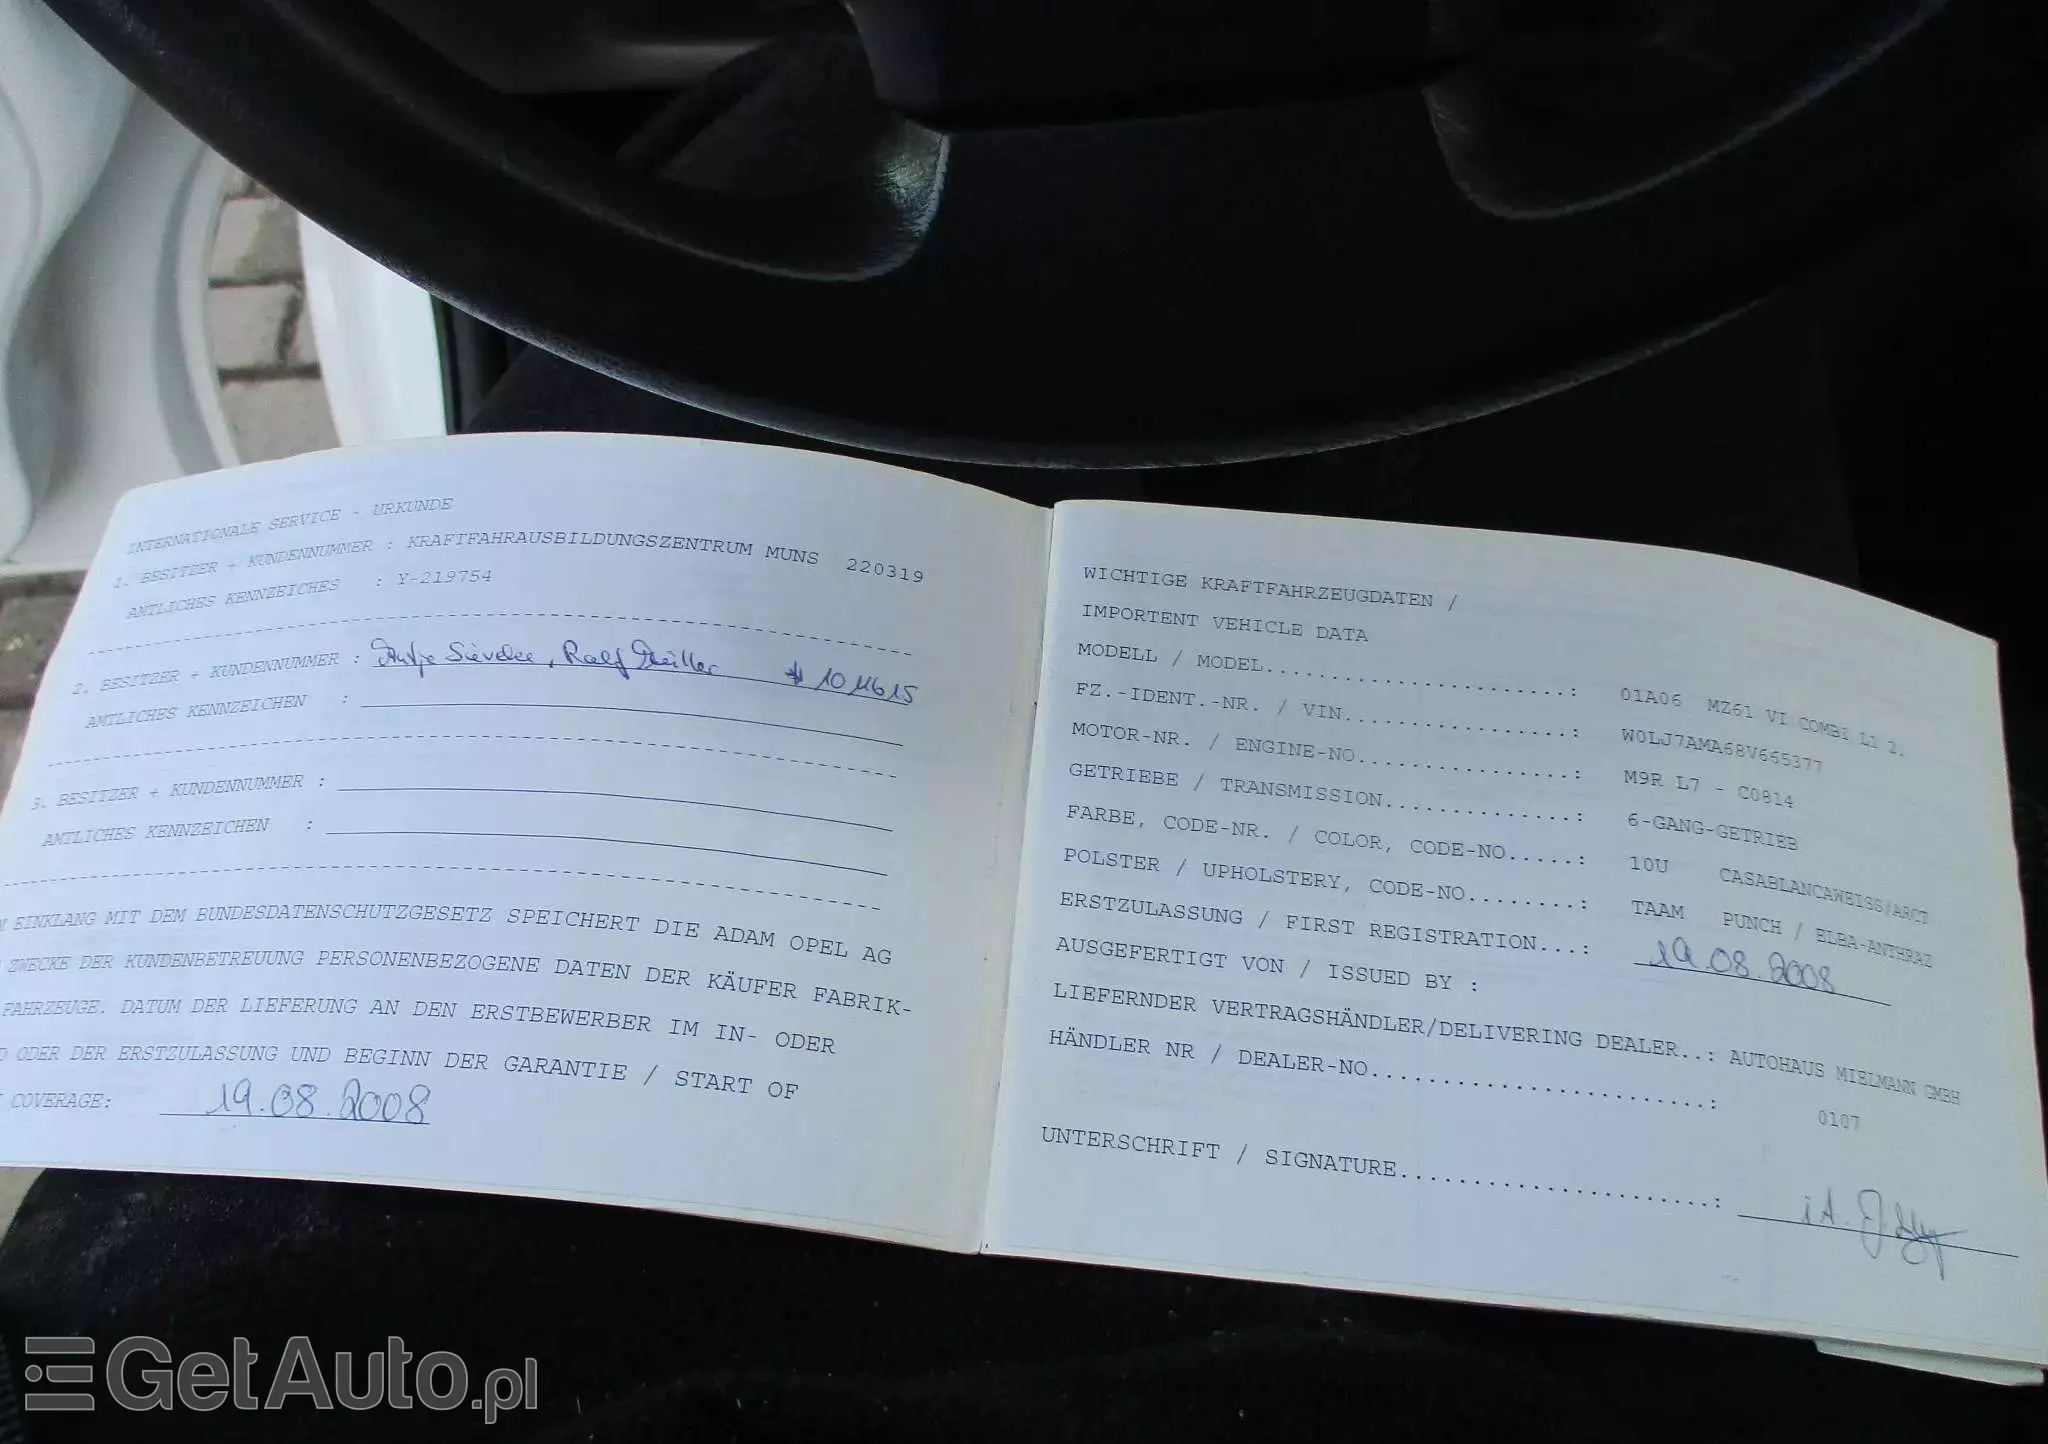 INTERNATIONALE SERVICE - URKUNDE
1. BESITZER + KUNDENNUMMER : KRAFTFAHRAUSBILDUNGSZENTRUM MUNS 220319
AMTLICHES KENNZEICHES : Y-219754
2. BESITZER + KUNDENNUMMER : Antje Sievdee, Ralf Müller * 1011615
AMTLICHES KENNZEICHEN :
3. BESITZER + KUNDENNUMMER :
AMTLICHES KENNZEICHEN :
M EINKLANG MIT DEM BUNDESDATENSCHUTZGESETZ SPEICHERT DIE ADAM OPEL AG
ZWECKE DER KUNDENBETREUUNG PERSONENBEZOGENE DATEN DER KÄUFER FABRIK-
FAHRZEUGE. DATUM DER LIEFERUNG AN DEN ERSTBEWERBER IM IN- ODER
D ODER DER ERSTZULASSUNG UND BEGINN DER GARANTIE / START OF
COVERAGE: 19.08.2008
WICHTIGE KRAFTFAHRZEUGDATEN /
IMPORTENT VEHICLE DATA
MODELL / MODEL.....................: 01A06 MZ61 VI COMBI L1 2.
FZ.-IDENT.-NR. / VIN................: W0LJ7AMA68V665377
MOTOR-NR. / ENGINE-NO...............: M9R L7 - C0814
GETRIEBE / TRANSMISSION.............: 6-GANG-GETRIEB
FARBE, CODE-NR. / COLOR, CODE-NO.....: 10U CASABLANCAWEISS/ARCT
POLSTER / UPHOLSTERY, CODE-NO........: TAAM PUNCH / ELBA-ANTHRAZ
ERSTZULASSUNG / FIRST REGISTRATION...: 19.08.2008
AUSGEFERTIGT VON / ISSUED BY :
LIEFERNDER VERTRAGSHÄNDLER/DELIVERING DEALER..: AUTOHAUS MIELMANN GMBH
HÄNDLER NR / DEALER-NO.......................: 0107
UNTERSCHRIFT / SIGNATURE.....................: i.A.
GetAuto.pl